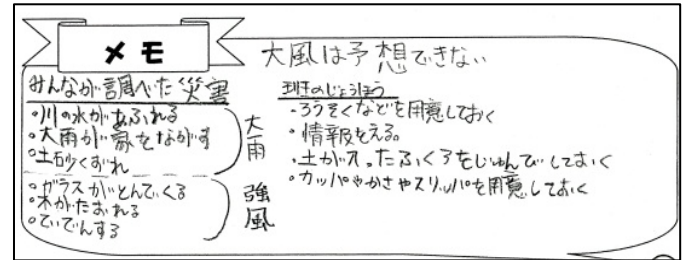 メモ
大風は予想できない
みんなが調べた災害
・川の水があふれる
・大雨が家をながす
・土砂くずれ
大雨
・ガラスがとんでくる
・木がたおれる
・ていでんする
強風
・ろうそくなどを用意しておく
・情報をえる。
・土が入ったふくろをじゅんびしておく
・カッパやかさやスリッパを用意しておく